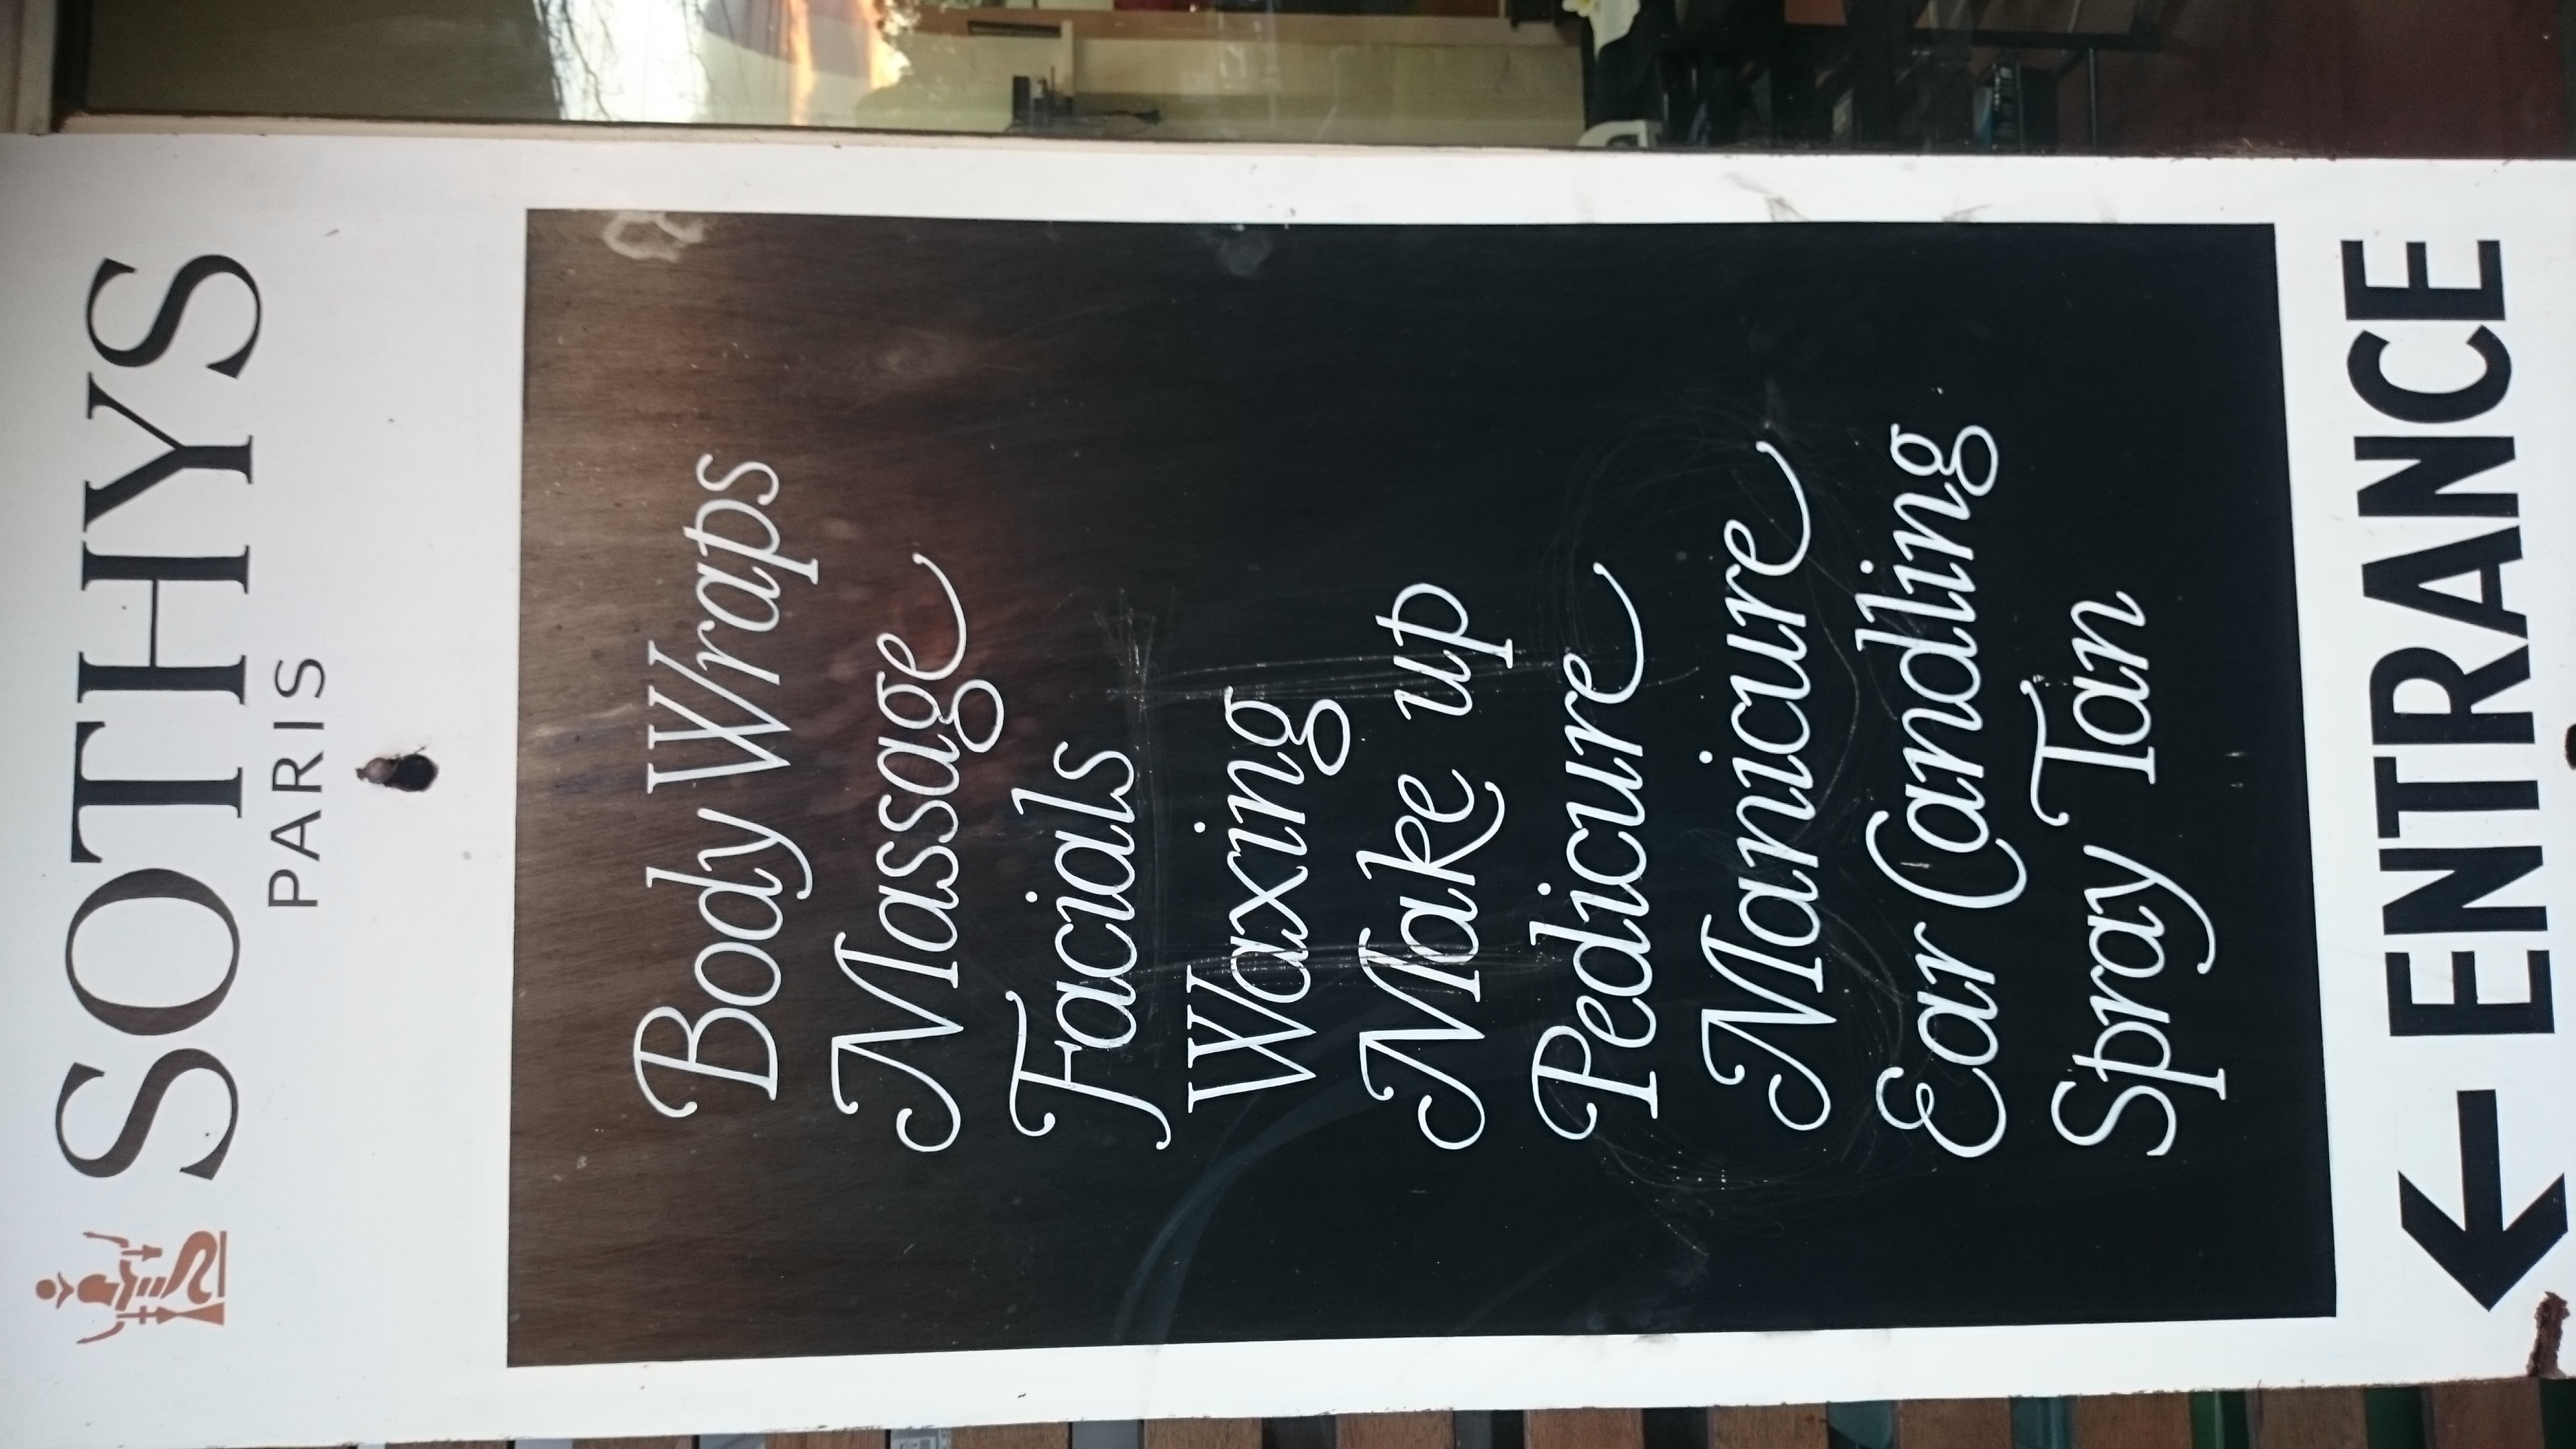 SOTHYS
PARIS
Body Wraps
Massage
Facials
Waxing
Make up
Pedicure
Manicure
Ear Candling
Spray Tan
← ENTRANCE